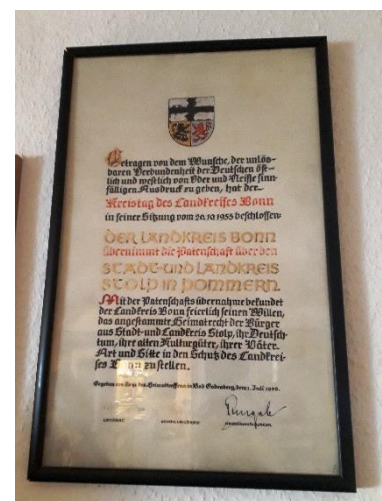 Getragen von dem Wunsche, der unlös-
baren Verbundenheit der Deutschen öst-
lich und westlich von Oder und Neisse sinn-
fälligen Ausdruck zu geben, hat der
Kreistag des Landkreises Bonn
in seiner Sitzung vom 20.10.1955 beschlossen:
DER LANDKREIS BONN
übernimmt die Patenschaft über den
STADT-UND LANDKREIS
STOLP IN POMMERN.
Mit der Patenschaftsübernahme bekundet
der Landkreis Bonn feierlich seinen Willen,
das angestammte Heimatrecht der Bürger
aus Stadt-und Landkreis Stolp, ihr Deutsch-
tum, ihre alten Kulturgüter, ihrer Väter
Art und Sitte in den Schutz des Landkrei-
ses Bonn zu stellen.
Gegeben am Tage des Heimattreffens in Bad Godesberg, den 1. Juli 1956.